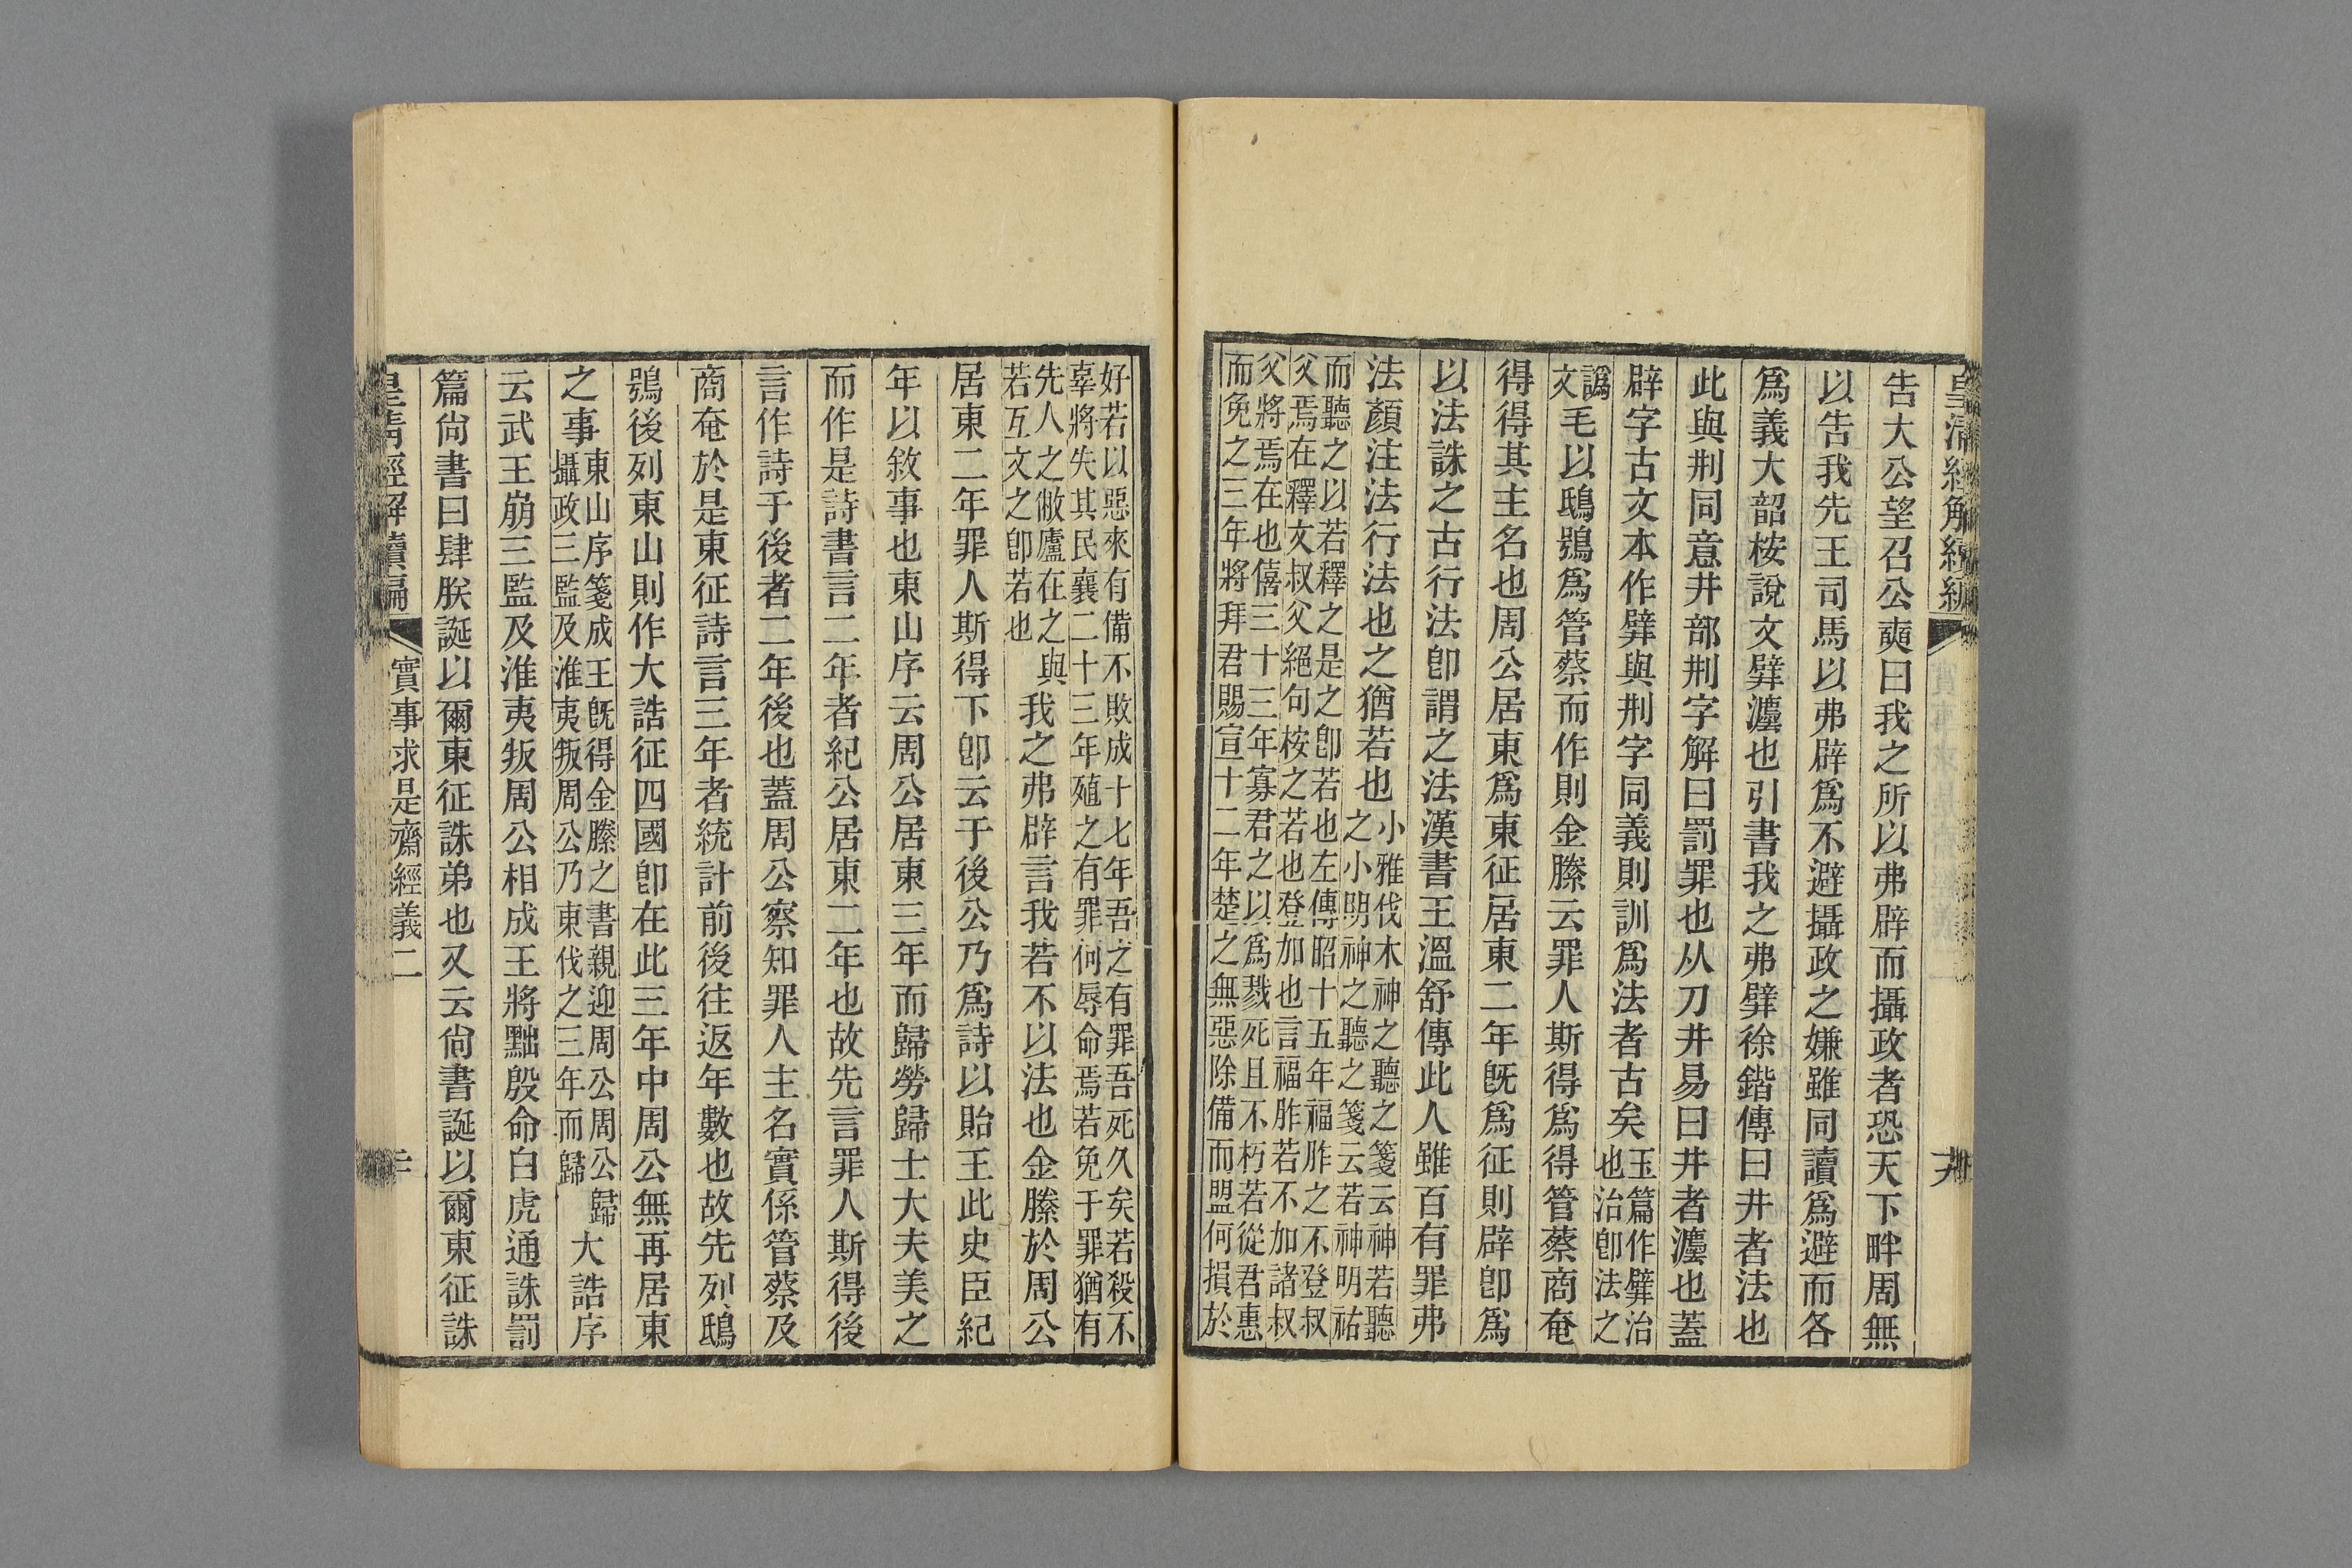 皇清經解續編
告大公望召公奭曰我之所以弗辟而攝政者恐天下畔周無
以告我先王司馬以弗辟爲不避攝政之嫌雖同讀爲避而各
爲義大韶桉說文㢸灋也引書我之弗㢸徐鍇傳曰井者法也
此與荆同意井部荆字解曰罰罪也从刀井易曰井者灋也蓋
辟字古文本作㢸與荆字同義則訓爲法者古矣玉篇作㢸治
也治卽法之
譌
文毛以鴟鴞爲管蔡而作則金縢云罪人斯得爲得管蔡商奄
得得其主名也周公居東爲東征居東二年旣爲征則辟卽爲
以法誅之古行法卽謂之法漢書王溫舒傳此人雖百有罪弗
法顏注法行法也之猶若也小雅伐木神之聽之箋云神若聽
之小明神之聽之箋云若神明祐
而聽之以若釋之是之卽若也左傳昭十五年福胙之不登叔
父焉在釋文叔父絕句桉之若也登加也言福胙若不加諸叔
父將焉在也僖三十三年寡君之以爲戮死且不朽若從君惠
而免之三年將拜君賜宣十二年楚之無惡除備而盟何損於
好若以惡來有備不敗成十七年吾之有罪吾死久矣若殺不
辜將失其民襄二十三年殖之有罪何辱命焉若免于罪猶有
先人之敝廬在之與
若互文之卽若也
我之弗辟言我若不以法也金縢於周公
居東二年罪人斯得下卽云于後公乃爲詩以貽王此史臣紀
年以敘事也東山序云周公居東三年而歸勞歸士大夫美之
而作是詩書言二年者紀公居東二年也故先言罪人斯得後
言作詩于後者二年後也蓋周公察知罪人主名實係管蔡及
商奄於是東征詩言三年者統計前後往返年數也故先列鴟
鴞後列東山則作大誥征四國卽在此三年中周公無再居東
之事東山序箋成王旣得金縢之書親迎周公周公歸
攝政三監及淮夷叛周公乃東伐之三年而歸
大誥序
云武王崩三監及淮夷叛周公相成王將黜殷命白虎通誅罰
篇尙書曰肆朕誕以爾東征誅弟也又云尙書誕以爾東征誅
皇清經解續編
實事求是齋經義二